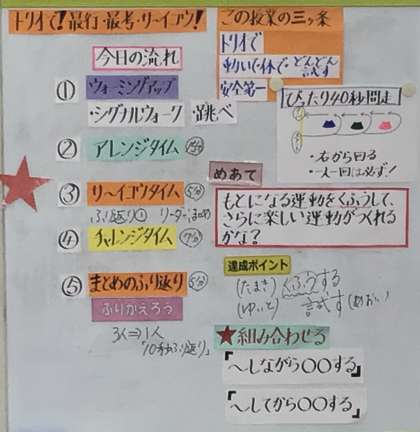 トリオで!最行・最考・サ~イコウ!
今日の流れ
① ウォーミングアップ
・シグナルウォーク ・跳べ
② アレンジタイム
③ サ~イコウタイム 5分
ふり返り①
④ チャレンジタイム 7分
⑤ まとめのふり返り 5分
ふりかえろう
3人⇒1人
「10秒ふり返り」
この授業の三ヶ条
トリオで
動いて・休で・どんどん試す
安全第一
ぴったり40秒間走
・右から回る
・一人一回は必ず!
めあて
もとになる運動をくふうして、
さらに楽しい運動がつくれる
かな?
達成ポイント
(たまき) くふうする
(ゆいと) 試す
★組み合わせる
「~しながら〇〇する」
「~してから〇〇する」